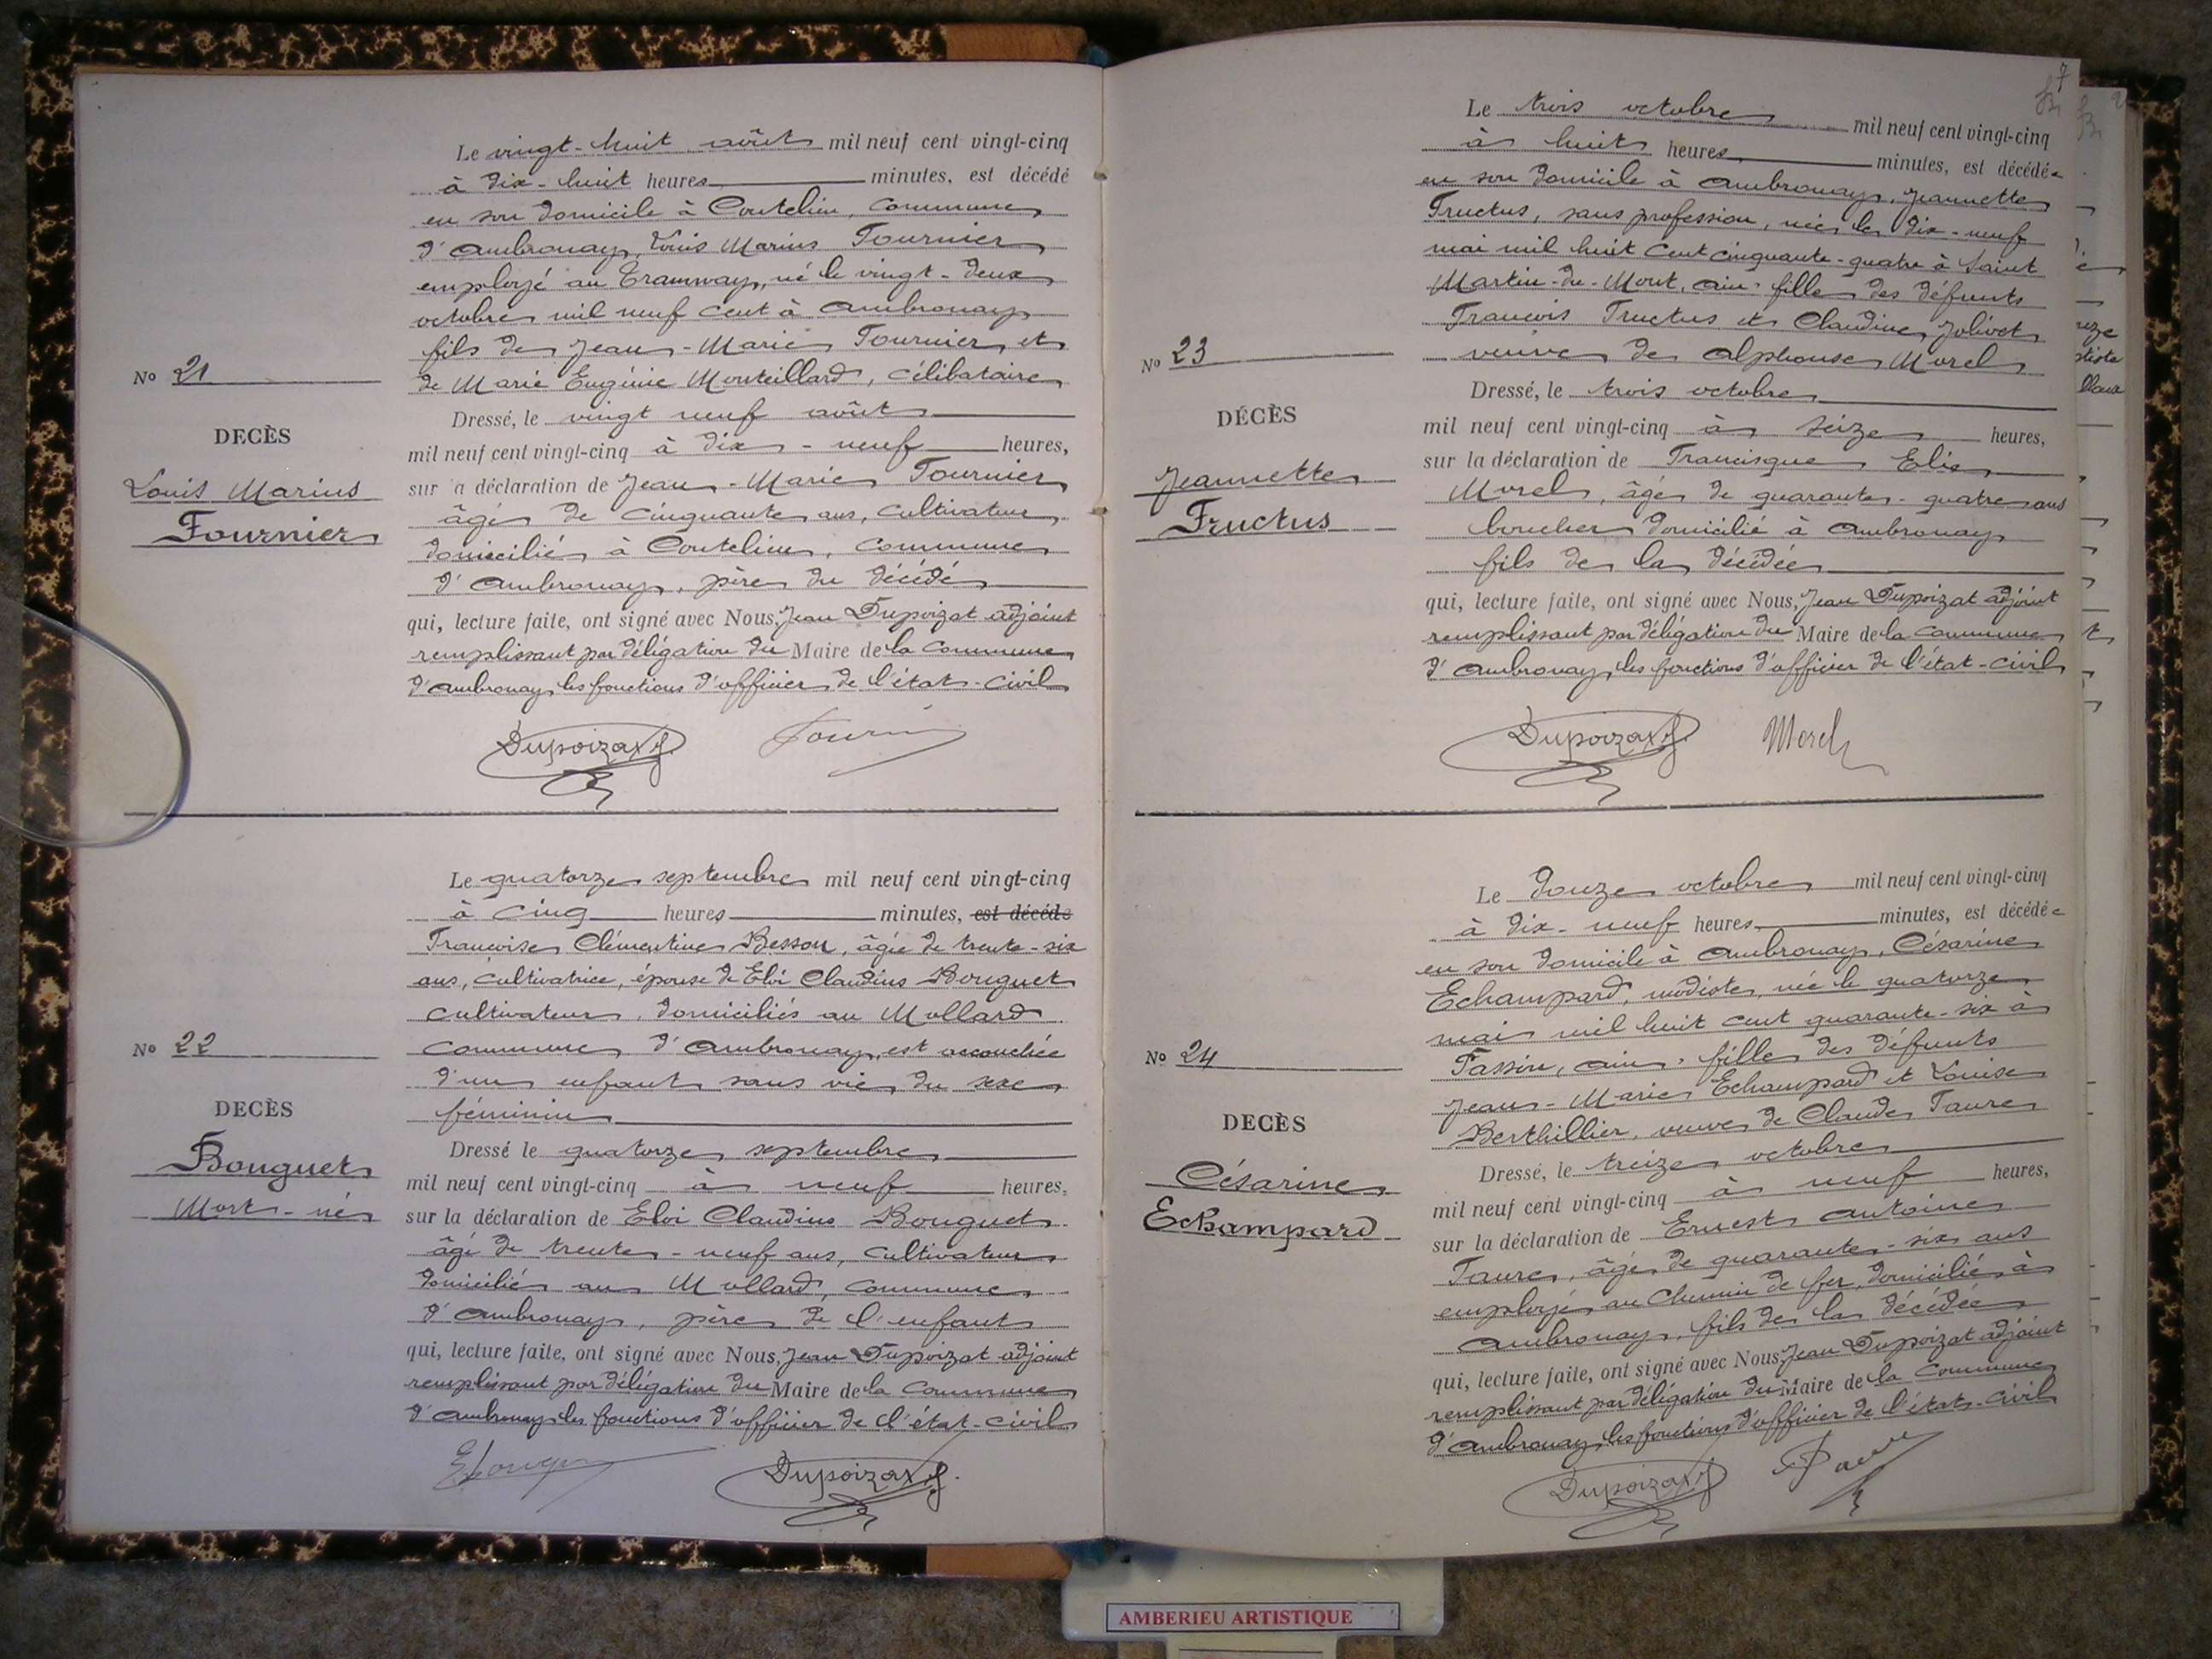 Le vingt-huit août mil neuf cent vingt-cinq
à dix-huit heures minutes, est décédé
en son domicile à Coutelieu, commune
d'Ambronay, Louis Marius Fournier
employé au Tramway, né le vingt-deux
octobre mil neuf cent à Ambronay
fils de Jean-Marie Fournier et
de Marie Eugénie Monteillard, célibataire
No 21
DECÈS
Louis Marius
Fournier
Dressé, le vingt neuf août
mil neuf cent vingt-cinq à dix-neuf heures,
sur a déclaration de Jean-Marie Fournier
âgé de cinquante ans, cultivateur
domicilié à Coutelieu, commune
d'Ambronay, père du décédé
qui, lecture faite, ont signé avec Nous, Jean Dupoizat adjoint
remplissant par délégation du Maire de la Commune
d'Ambronay les fonctions d'officier de l'état-civil
Dupoizat J.
Le quatorze septembre mil neuf cent vingt-cinq
à cinq heures minutes, est décédé
Françoise Clémentine Besson, âgée de trente-six
ans, cultivatrice, épouse de Eloi Claudius Bouguet
cultivateur, domiciliés au Mollard
commune d'Ambronay, est accouchée
d'un enfant sans vie du sexe
féminin
No 22
DECÈS
Bouguet
Mort-né
Dressé le quatorze septembre
mil neuf cent vingt-cinq à neuf heures,
sur la déclaration de Eloi Claudius Bouguet
âgé de trente-neuf ans, cultivateur
domicilié au Mollard, commune
d'Ambronay, père de l'enfant
qui, lecture faite, ont signé avec Nous, Jean Dupoizat adjoint
remplissant par délégation du Maire de la Commune
d'Ambronay les fonctions d'officier de l'état-civil
Dupoizat J.
7
Le trois octobre mil neuf cent vingt-cinq
à huit heures minutes, est décédée
en son domicile à Ambronay, Jeannette
Fructus, sans profession, née le dix-neuf
mai mil huit cent cinquante-quatre à Saint
Martin-du-Mont, Ain, fille des défunts
François Fructus et Claudine Jolivet
veuve de Alphonse Morel
No 23
DÉCÈS
Jeannette
Fructus
Dressé, le trois octobre
mil neuf cent vingt-cinq à seize heures,
sur la déclaration de Francisque Elie
Morel, âgé de quarante-quatre ans
boucher domicilié à Ambronay
fils de la décédée
qui, lecture faite, ont signé avec Nous, Jean Dupoizat adjoint
remplissant par délégation du Maire de la Commune
d'Ambronay, les fonctions d'officier de l'état-civil
Dupoizat J. Morel
Le douze octobre mil neuf cent vingt-cinq
à dix-neuf heures minutes, est décédée
en son domicile à Ambronay, Césarine
Echampard, modiste, née le quatorze
mai mil huit cent quarante-six à
Tassin, Ain, fille des défunts
Jean-Marie Echampard et Louise
Berthillier, veuve de Claude Faure
No 24
DECÈS
Césarine
Echampard
Dressé, le treize octobre
mil neuf cent vingt-cinq à neuf heures,
sur la déclaration de Ernest Antoine
Faure, âgé de quarante-six ans
employé au Chemin de fer, domicilié à
Ambronay, fils de la décédée
qui, lecture faite, ont signé avec Nous, Jean Dupoizat adjoint
remplissant par délégation du Maire de la Commune
d'Ambronay les fonctions d'officier de l'état-civil
Dupoizat J.
AMBERIEU ARTISTIQUE